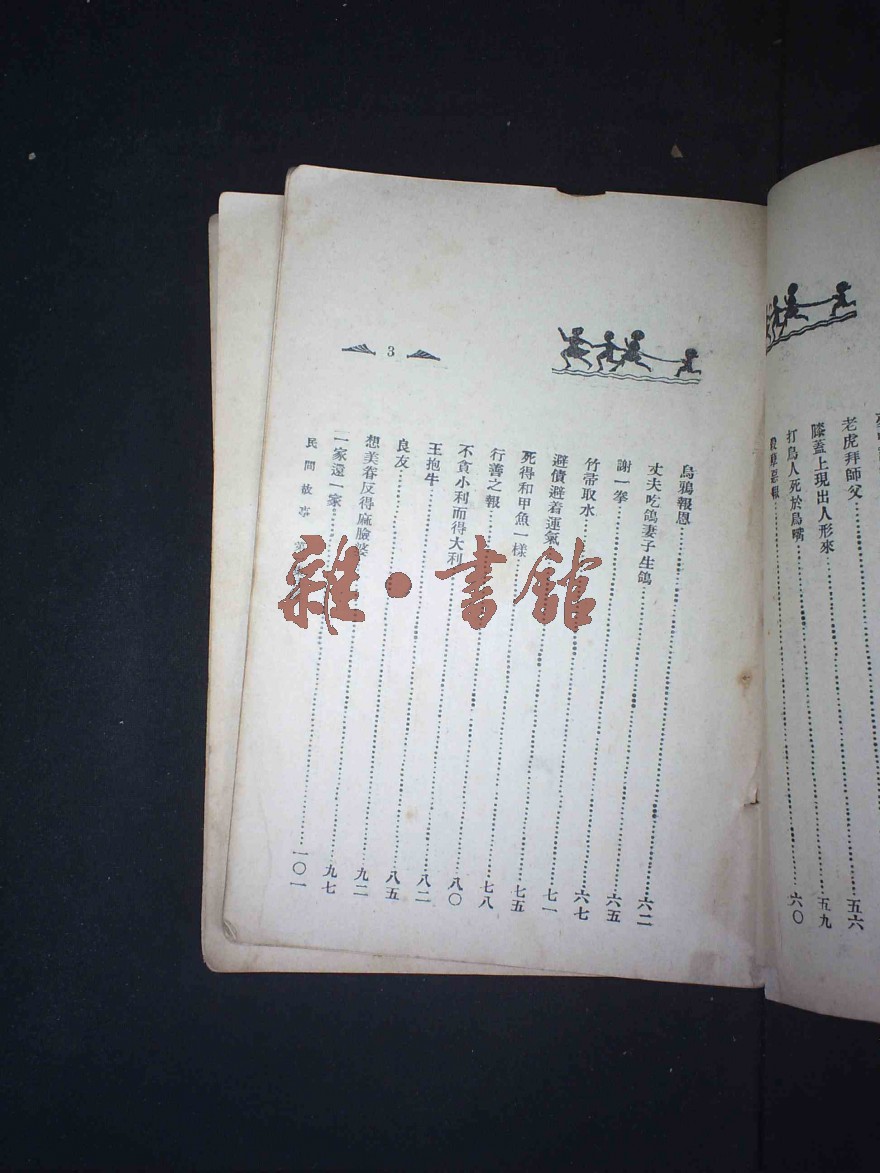 老虎拜師父⋯⋯五六
膝蓋上現出人形來⋯⋯五九
打鳥人死於鳥嘴⋯⋯六〇
惡報
3
烏鴉報恩⋯⋯六二
丈夫吃鴿妻子生鴿⋯⋯六五
謝一拳⋯⋯六七
竹帚取水⋯⋯七一
避債避着運氣⋯⋯七五
死得和甲魚一樣⋯⋯七八
行善之報⋯⋯八〇
不貪小利而得大利⋯⋯八二
王抱牛⋯⋯八五
良友⋯⋯九二
想美眷反得麻臉婆⋯⋯九七
二家還一家⋯⋯一〇一
民間故事
雜·書館